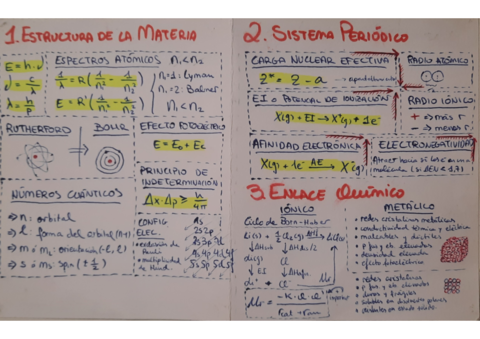 1. ESTRUCTURA DE LA MATERIA
E = h · ν
ν = c/λ
λ = h/p
ESPECTROS ATÓMICOS n₁ < n₂
1/λ = R (1/n₁² - 1/n₂²)
E = R' (1/n₁² - 1/n₂²)
n=1: Lyman
n=2: Balmer
n₁ < n₂
RUTHERFORD
BOHR
EFECTO FOTOELÉCTRICO
E = E₀ + Ec
PRINCIPIO DE INDETERMINACIÓN
Δx · Δp ≥ h/4π
NÚMEROS CUÁNTICOS
⇒ n: orbital
⇒ l: forma del orbital (n-1)
⇒ m: orientación (-l, l)
⇒ s: spin (± 1/2)
CONFIG ELEC.
exclusión de Pauli
multiplicidad de Hund
1s
2s 2p
3s 3p 3d
4s 4p 4d 4f
5s 5p 5d 5f
2. SISTEMA PERIÓDICO
CARGA NUCLEAR EFECTIVA
Z* = Z - a
apantallamiento
RADIO ATÓMICO
EI o POTENCIAL DE IONIZACIÓN
X(g) + EI → X⁺(g) + 1e⁻
RADIO IÓNICO
+ ⇒ más r
- ⇒ menos r
AFINIDAD ELECTRÓNICA
X(g) + 1e⁻ AE→ X⁻(g)
ELECTRONEGATIVIDAD
3. ENLACE QUÍMICO
IÓNICO
Ciclo de Born-Haber
METÁLICO
• redes cristalinas metálicas
• conductividad térmica y eléctrica
• maleables y dúctiles
• p. fus y eb. elevados
• densidad elevada
• efecto fotoeléctrico
• redes cristalinas
• p. fus y eb. elevados
• duros y frágiles
• solubles en disolventes polares